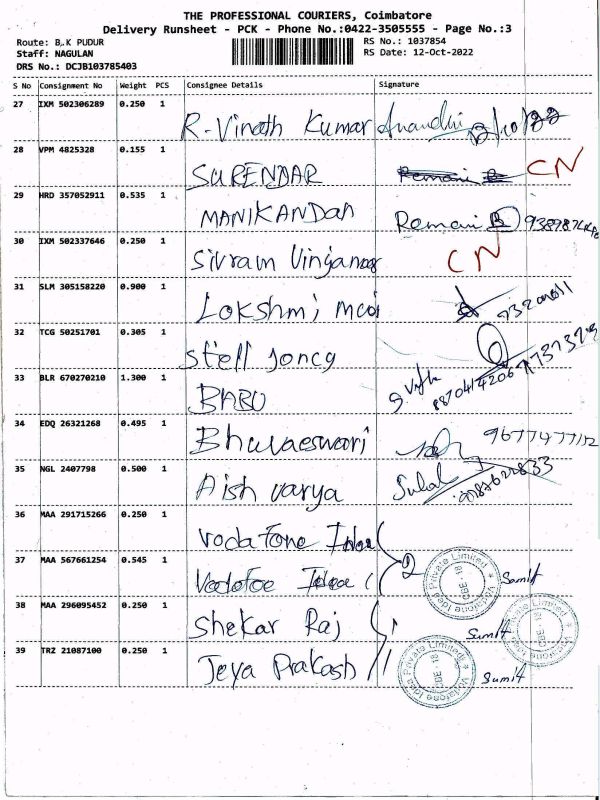 THE PROFESSIONAL COURIERS, Coimbatore
Delivery Runsheet - PCK - Phone No.:0422-3505555 - Page No.:3
Route: B,.K PUDUR
RS No.: 1037854
Staff: NAGULAN
RS Date: 12-Oct-2022
DRS No.: DCJB103785403
S No Consignment No Weight PCS Consignee Details Signature
27 IXM 502306289 0.250 1
R-Vinoth Kumar Anandhi
28 VPM 4825328 0.155 1
SURENDAR CN
29 HRD 357052911 0.535 1
MANIKANDAN Remani B
30 IXM 502337646 0.250 1
Sivram CN
31 SLM 305158220 0.900 1
Lokshmi
32 TCG 50251701 0.305 1
Stell
33 BLR 670270210 1.300 1
BABU
34 EDQ 26321268 0.495 1
Bhuvaeswari
35 NGL 2407798 0.500 1
Aish varya
36 MAA 291715266 0.250 1
Vodafone Idea
37 MAA 567661254 0.545 1
Vodafoe Idea 2 Vodafone Idea Private Limited Sumit
38 MAA 296095452 0.250 1
Shekar Raj Sumit
39 TRZ 21087100 0.250 1
Jeya Prakash Vodafone Idea Private Limited Sumit